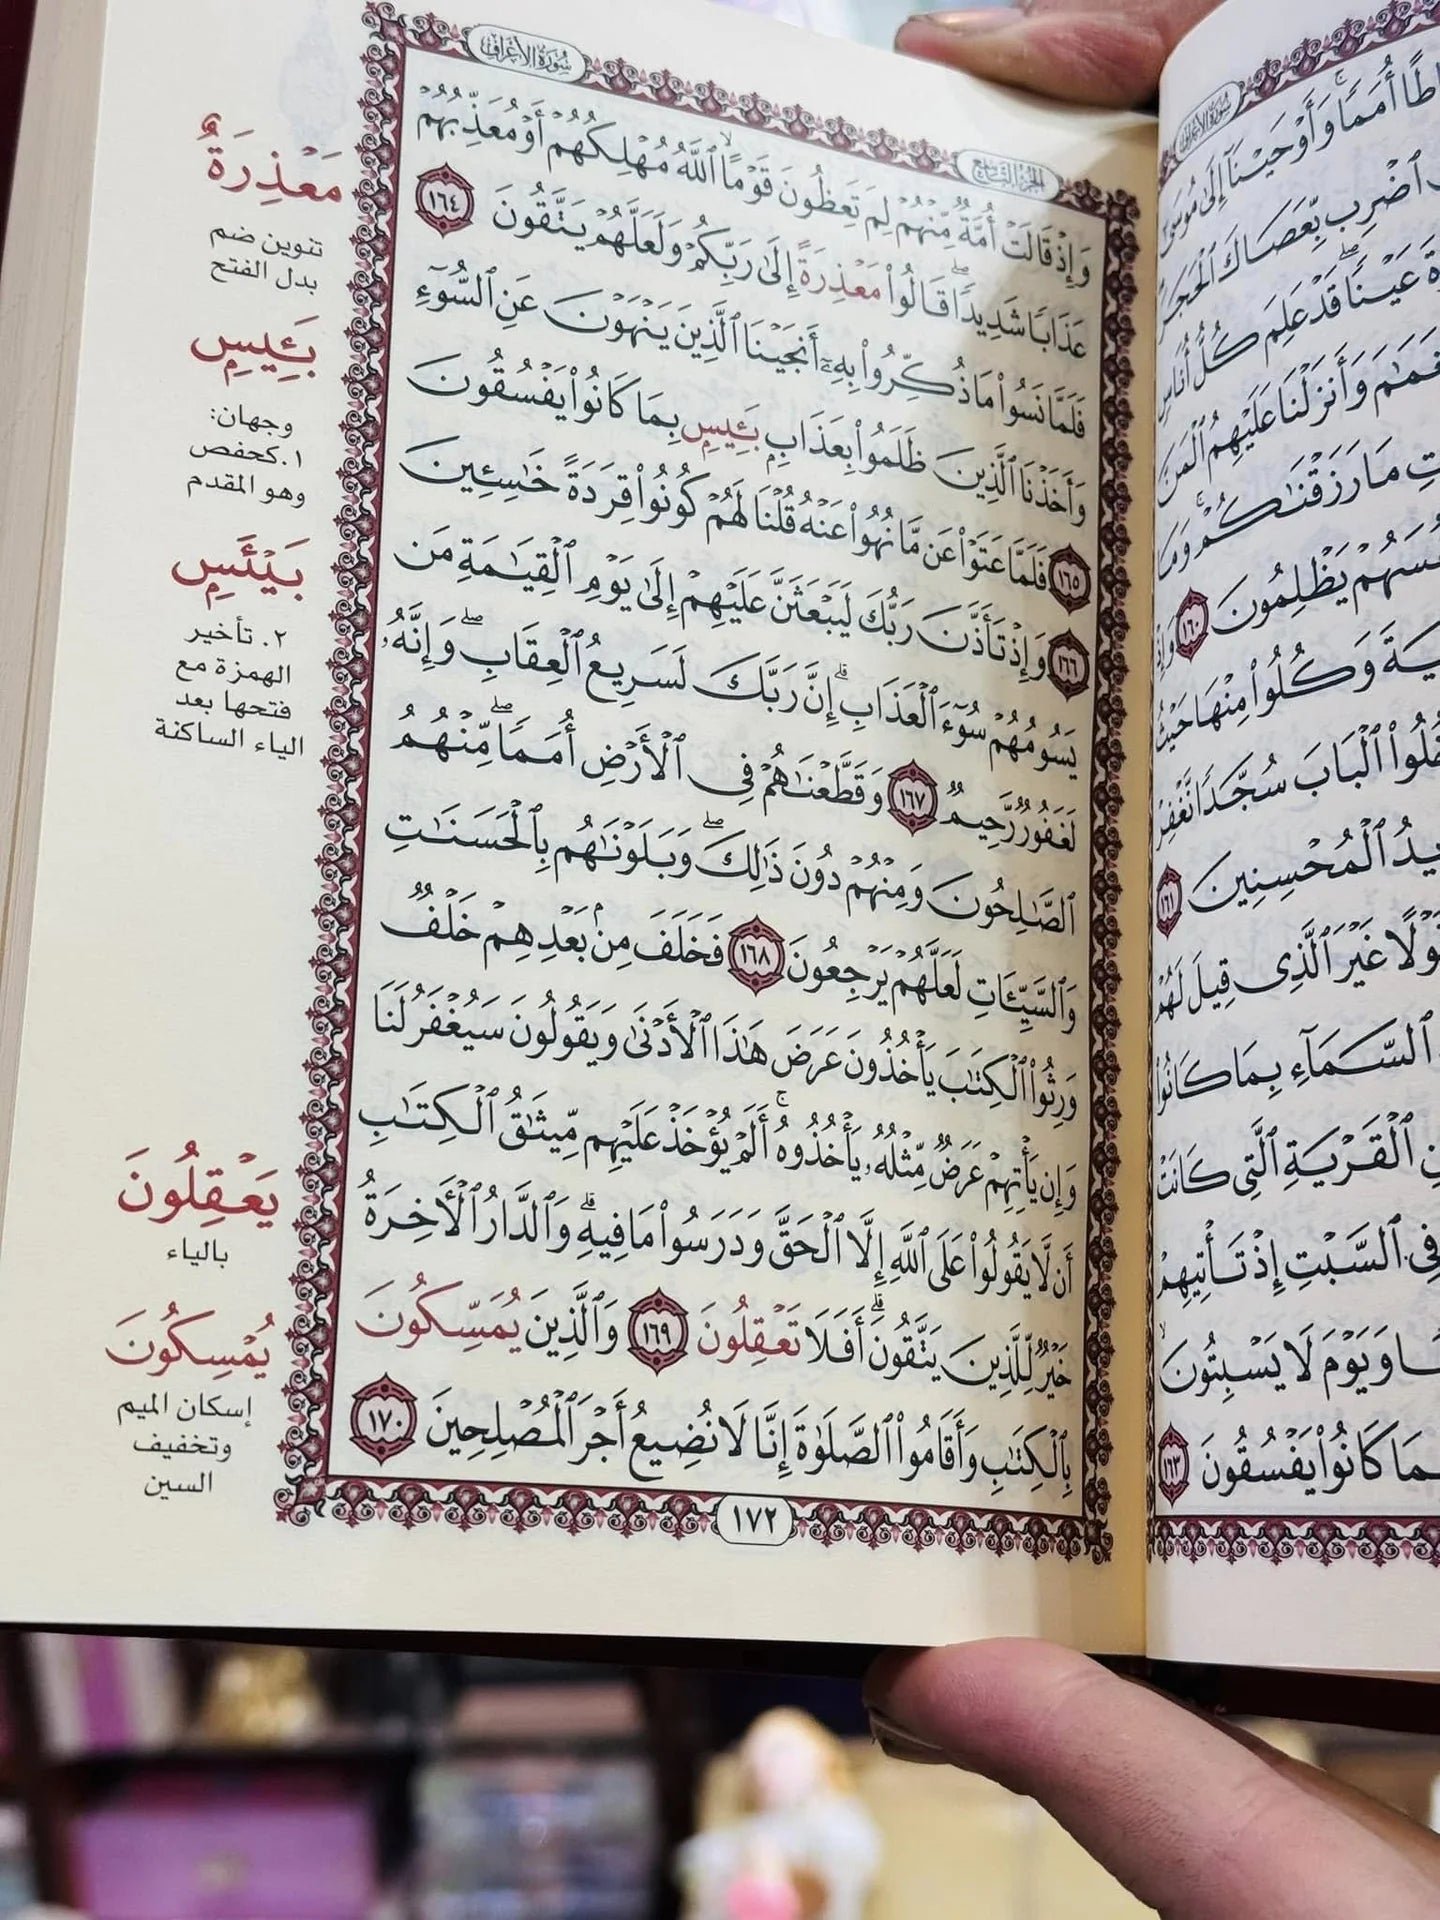 سُورَةُ الأَعْرَافِ
الجزء التاسع
وَإِذْ قَالَتْ أُمَّةٌ مِّنْهُمْ لِمَ تَعِظُونَ قَوْمًا ٱللَّهُ مُهْلِكُهُمْ أَوْ مُعَذِّبُهُمْ
عَذَابًا شَدِيدًا ۖ قَالُوا۟ مَعْذِرَةً إِلَىٰ رَبِّكُمْ وَلَعَلَّهُمْ يَتَّقُونَ ١٦٤
فَلَمَّا نَسُوا۟ مَا ذُكِّرُوا۟ بِهِۦٓ أَنجَيْنَا ٱلَّذِينَ يَنْهَوْنَ عَنِ ٱلسُّوٓءِ
وَأَخَذْنَا ٱلَّذِينَ ظَلَمُوا۟ بِعَذَابٍۭ بَـِٔيسٍۭ بِمَا كَانُوا۟ يَفْسُقُونَ
١٦٥ فَلَمَّا عَتَوْا۟ عَن مَّا نُهُوا۟ عَنْهُ قُلْنَا لَهُمْ كُونُوا۟ قِرَدَةً خَـٰسِـِٔينَ
١٦٦ وَإِذْ تَأَذَّنَ رَبُّكَ لَيَبْعَثَنَّ عَلَيْهِمْ إِلَىٰ يَوْمِ ٱلْقِيَـٰمَةِ مَن
يَسُومُهُمْ سُوٓءَ ٱلْعَذَابِ ۗ إِنَّ رَبَّكَ لَسَرِيعُ ٱلْعِقَابِ ۖ وَإِنَّهُۥ
لَغَفُورٌ رَّحِيمٌ ١٦٧ وَقَطَّعْنَـٰهُمْ فِى ٱلْأَرْضِ أُمَمًا ۖ مِّنْهُمُ
ٱلصَّـٰلِحُونَ وَمِنْهُمْ دُونَ ذَٰلِكَ ۖ وَبَلَوْنَـٰهُم بِٱلْحَسَنَـٰتِ
وَٱلسَّيِّـَٔاتِ لَعَلَّهُمْ يَرْجِعُونَ ١٦٨ فَخَلَفَ مِنۢ بَعْدِهِمْ خَلْفٌ
وَرِثُوا۟ ٱلْكِتَـٰبَ يَأْخُذُونَ عَرَضَ هَـٰذَا ٱلْأَدْنَىٰ وَيَقُولُونَ سَيُغْفَرُ لَنَا
وَإِن يَأْتِهِمْ عَرَضٌ مِّثْلُهُۥ يَأْخُذُوهُ ۚ أَلَمْ يُؤْخَذْ عَلَيْهِم مِّيثَـٰقُ ٱلْكِتَـٰبِ
أَن لَّا يَقُولُوا۟ عَلَى ٱللَّهِ إِلَّا ٱلْحَقَّ وَدَرَسُوا۟ مَا فِيهِ ۗ وَٱلدَّارُ ٱلْـَٔاخِرَةُ
خَيْرٌ لِّلَّذِينَ يَتَّقُونَ ۗ أَفَلَا تَعْقِلُونَ ١٦٩ وَٱلَّذِينَ يُمَسِّكُونَ
بِٱلْكِتَـٰبِ وَأَقَامُوا۟ ٱلصَّلَوٰةَ إِنَّا لَا نُضِيعُ أَجْرَ ٱلْمُصْلِحِينَ ١٧٠
١٧٢
مَعْذِرَةٌ
تنوين ضم
بدل الفتح
بَـِٔيسٍ
وجهان:
١. كحفص
وهو المقدم
بَيْـَٔسٍ
٢. تأخير
الهمزة مع
فتحها بعد
الياء الساكنة
يَعْقِلُونَ
بالياء
يُمْسِكُونَ
إسكان الميم
وتخفيف
السين
سُورَةُ الأَعْرَافِ
أُمَمًا ۚ وَأَوْحَيْنَآ إِلَىٰ مُوسَىٰٓ
ٱضْرِب بِّعَصَاكَ ٱلْحَجَرَ
عَيْنًا ۖ قَدْ عَلِمَ كُلُّ أُنَاسٍ
وَأَنزَلْنَا عَلَيْهِمُ ٱلْمَنَّ
مَا رَزَقْنَـٰكُمْ ۚ وَمَا
يَظْلِمُونَ ١٦٠ وَإِذْ
وَكُلُوا۟ مِنْهَا حَيْثُ
ٱلْبَابَ سُجَّدًا نَّغْفِرْ
ٱلْمُحْسِنِينَ ١٦١
غَيْرَ ٱلَّذِى قِيلَ لَهُمْ
ٱلسَّمَآءِ بِمَا كَانُوا۟
ٱلْقَرْيَةِ ٱلَّتِى كَانَتْ
فِى ٱلسَّبْتِ إِذْ تَأْتِيهِمْ
وَيَوْمَ لَا يَسْبِتُونَ
كَانُوا۟ يَفْسُقُونَ ١٦٣